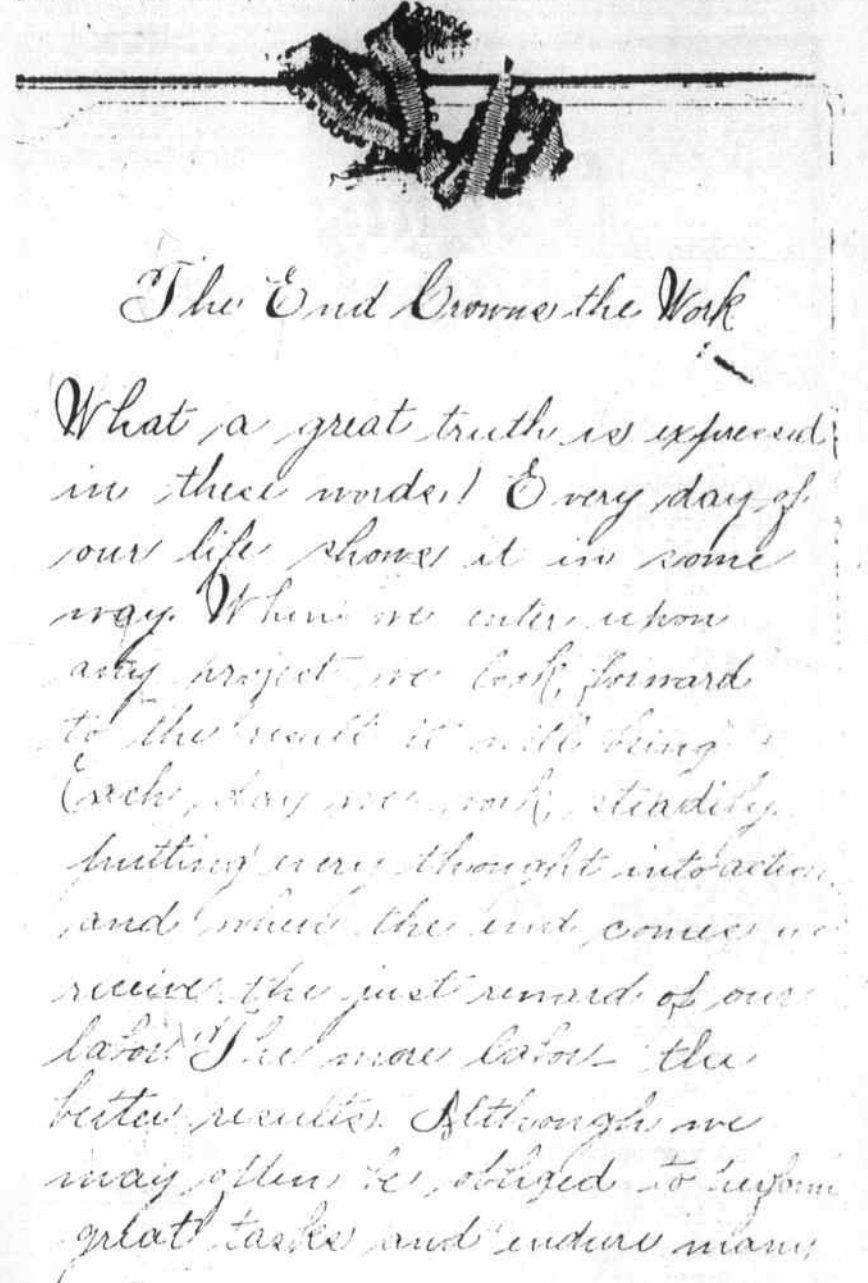 The End Crowns the Work
What a great truth is expressed
in these words! Every day of
our life shows it in some
way. When we enter upon
any project we look forward
to the result it will bring.
Each day we work, steadily
putting every thought into action
and when the end comes we
receive the just reward of our
labor. The more labor the
better results. Although we
may often be obliged to perform
great tasks and endure many